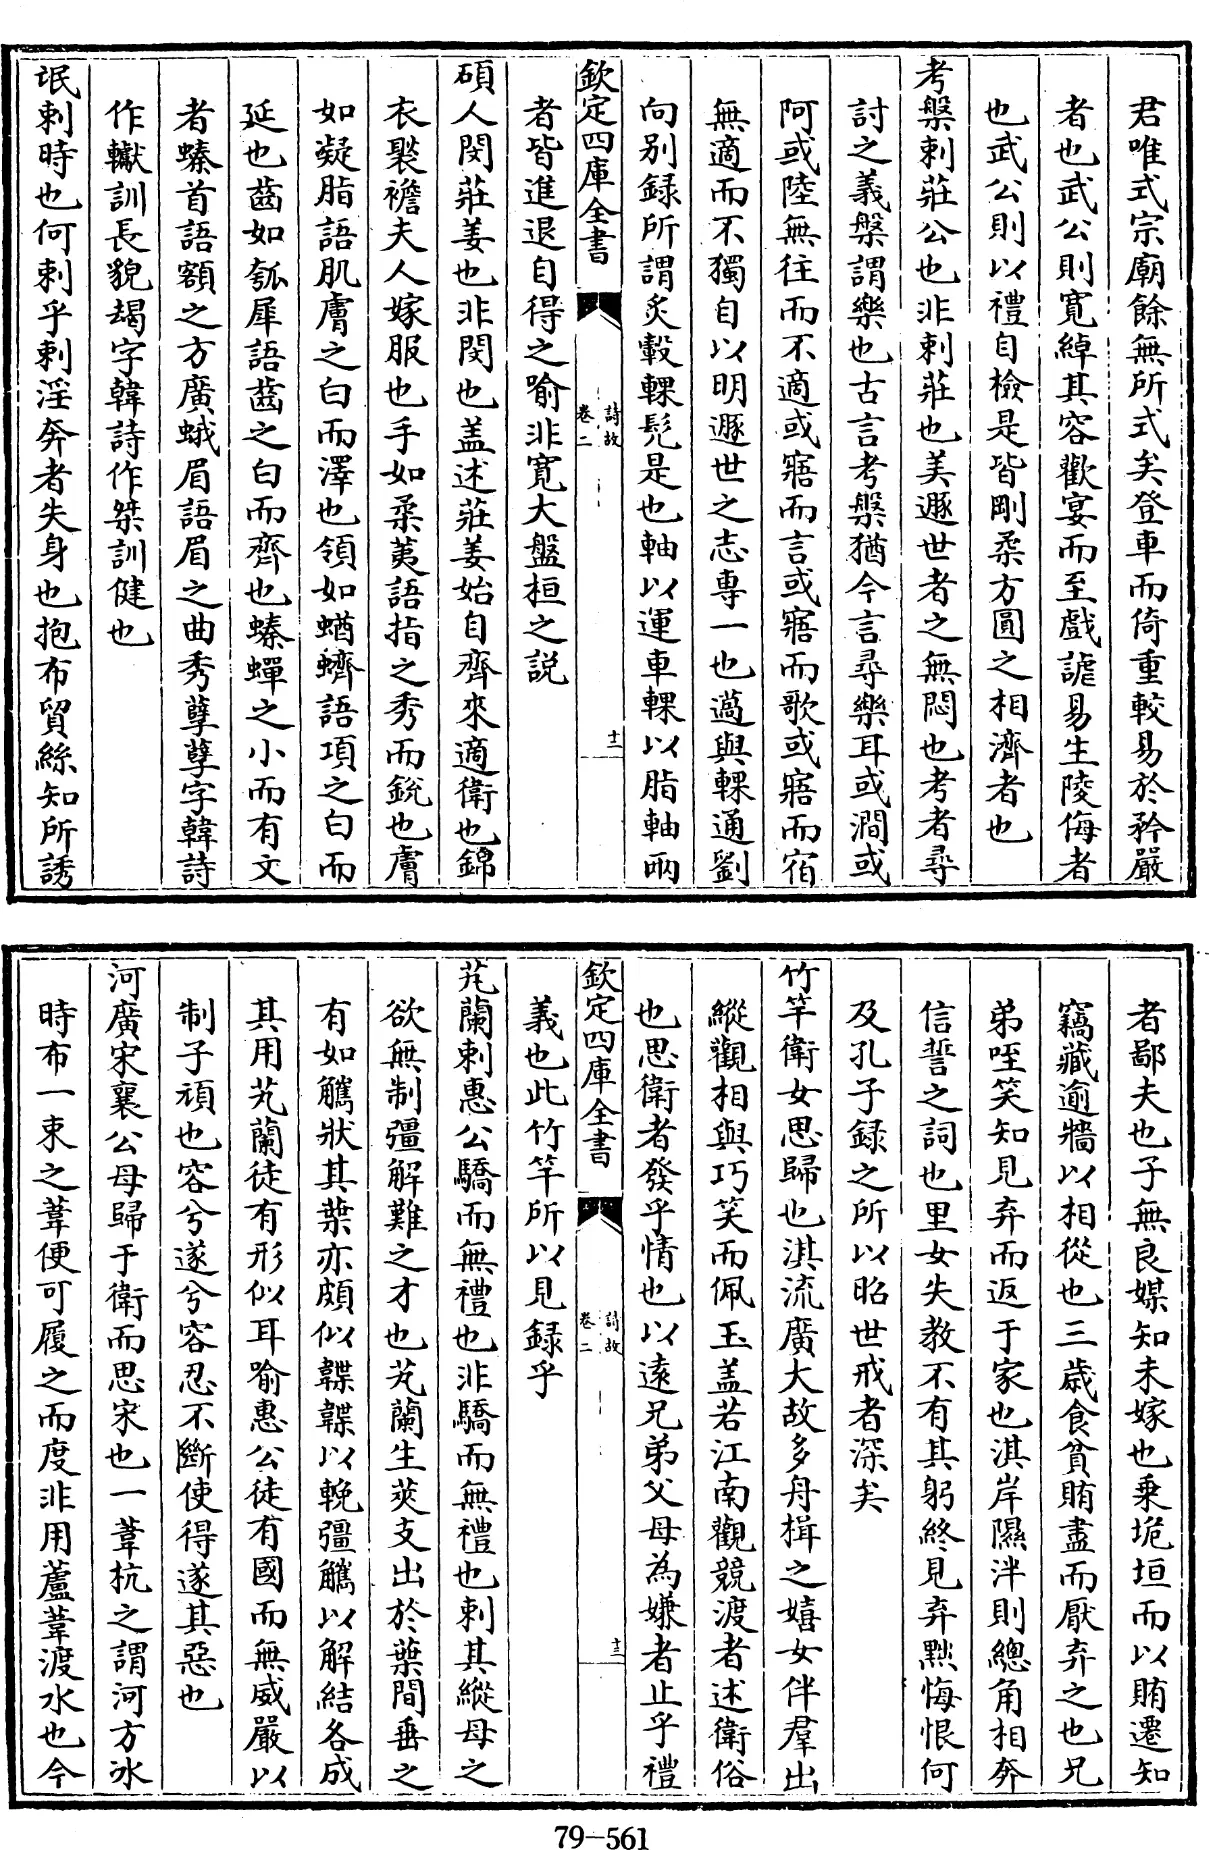 君唯式宗廟餘無所式矣登車而倚重較易於矜嚴
者也武公則寛綽其容歡宴而至戲謔易生陵侮者
也武公則以禮自檢是皆剛柔方圓之相濟者也
考槃刺莊公也非刺莊也美遯世者之無悶也考者尋
討之義槃謂樂也古言考槃猶今言尋樂耳或澗或
阿或陸無往而不適或寤而言或寤而歌或寤而宿
無適而不獨自以明遯世之志專一也薖與輠通劉
向别録所謂炙轂輠髡是也軸以運車輠以脂軸兩
者皆進退自得之喻非寛大盤桓之説
欽定四庫全書
詩故
卷二
十二
碩人閔莊姜也非閔也盖述莊姜始自齊來適衛也錦
衣褧襜夫人嫁服也手如柔荑語指之秀而銳也膚
如凝脂語肌膚之白而澤也領如蝤蠐語項之白而
延也齒如瓠犀語齒之白而齊也螓蟬之小而有文
者螓首語額之方廣蛾眉語眉之曲秀孽孽字韓詩
作钀訓長貌朅字韓詩作桀訓健也
氓刺時也何刺乎刺淫奔者失身也抱布貿絲知所誘
者鄙夫也子無良媒知未嫁也乗垝垣而以賄遷知
竊藏逾牆以相從也三歲食貧賄盡而厭弃之也兄
弟咥笑知見弃而返于家也淇岸隰泮則總角相奔
信誓之詞也里女失教不有其躬終見弃黜悔恨何
及孔子録之所以昭世戒者深矣
竹竿衛女思歸也淇流廣大故多舟楫之嬉女伴羣出
縱觀相與巧笑而佩玉盖若江南觀競渡者述衛俗
也思衛者發乎情也以逺兄弟父母為嫌者止乎禮
義也此竹竿所以見録乎
欽定四庫全書
詩故
卷二
十三
芄蘭刺惠公驕而無禮也非驕而無禮也刺其縱母之
欲無制彊解難之才也芄蘭生莢支出於葉間垂之
有如觿狀其葉亦頗似韘韘以輓彊觿以解結各成
其用芄蘭徒有形似耳喻惠公徒有國而無威嚴以
制子頑也容兮遂兮容忍不斷使得遂其惡也
河廣宋襄公母歸于衛而思宋也一葦杭之謂河方冰
時布一束之葦便可履之而度非用蘆葦渡水也今
79-561